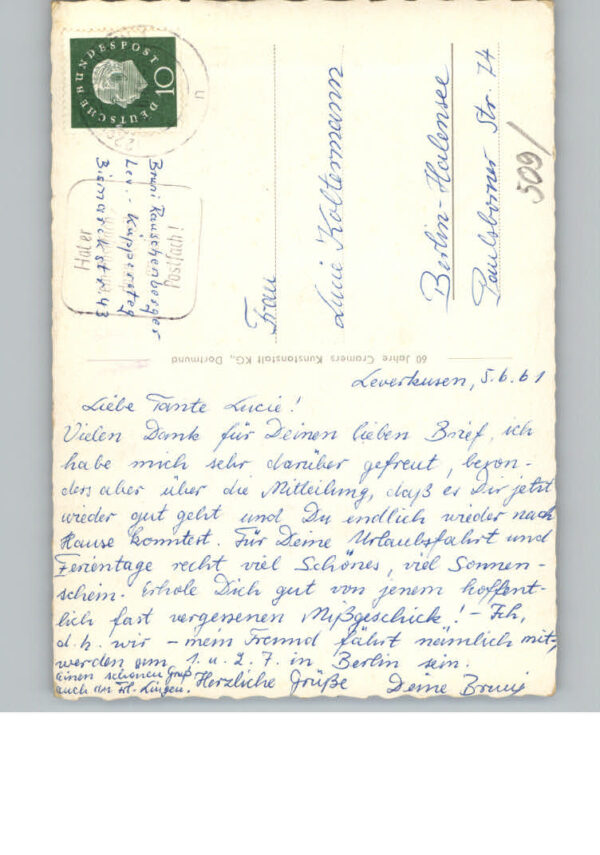 DEUTSCHE BUNDESPOST
10
Halter
Postfach!
Bruni Rauschenberger
Lev. - Küppersteg
Bismarckstr. 43
Frau
Lucie Koltermann
Berlin-Halensee
Paulsborner Str. 74
509/
60 Jahre Cramers Kunstanstalt KG., Dortmund
Leverkusen, 5.6.61
Liebe Tante Lucie!
Vielen Dank für Deinen lieben Brief, ich
habe mich sehr darüber gefreut, beson-
ders aber über die Mitteilung, daß es Dir jetzt
wieder gut geht und Du endlich wieder nach
Hause konntest. Für Deine Urlaubsfahrt und
Ferientage recht viel Schönes, viel Sonnen-
schein. Erhole Dich gut von jenem hoffent-
lich fast vergessenen Mißgeschick! - Ich,
d.h. wir - mein Freund fährt nämlich mit,
werden am 1. u. 2.7. in Berlin sein.
Herzliche Grüße Deine Bruni
einen schönen Gruß
auch an Frl. Lingen.